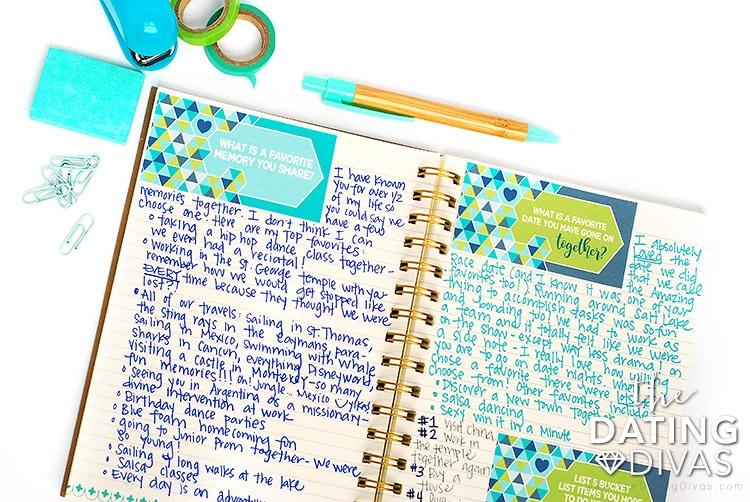 WHAT IS A FAVORITE
MEMORY YOU SHARE?
I have known
you for over 1/2
of my life so
you could say we
have a few
memories together. I don't think I can
choose one. Here are my Top favorites:
• taking a hip hop dance class together-
we even had a recital!
• working in the St. George temple with you-
remember how we would get stopped like
EVERY time because they thought we were
lost?!
• All of our travels: Sailing in St. Thomas,
the sting rays in the Caymans, para-
sailing in Mexico, swimming with Whale
sharks in Cancun, everything Disneyworld,
visiting a castle in Monterey-so many
fun memories!!! oh! Jungle... Mexico... yikes!
• Seeing you in Argentina as a missionary-
divine intervention at work
• Birthday dance parties
• Blue foam homecoming fun
• going to Junior Prom together-we were
so young!
• Sailing & long walks at the lake
• Salsa classes
• Every day is an adventure
WHAT IS A FAVORITE
DATE YOU HAVE GONE ON
together?
I absolutely
loved the
date we did
that we call
the Amazing
Race date (and I know it was one of your
favorites too!) Running around Salt Lake
trying to accomplish tasks was so fun
and bonding too! We had to work as
a team and it totally felt like we were
on the show-except way less drama! on
a side note- I really love how willing
you are to go on date nights when I
chose a favorite- there were lots to
choose from! Other favorites include:
• Discover a New Town Together
• Salsa dancing
• Sexy Win it in a Minute
#1 Visit China
#2 Work in
the temple
together again
#3 Buy a
House
#4
LIST 5 BUCKET
LIST ITEMS YOU HOPE
the
DATING
DIVAS
TheDatingDivas.com